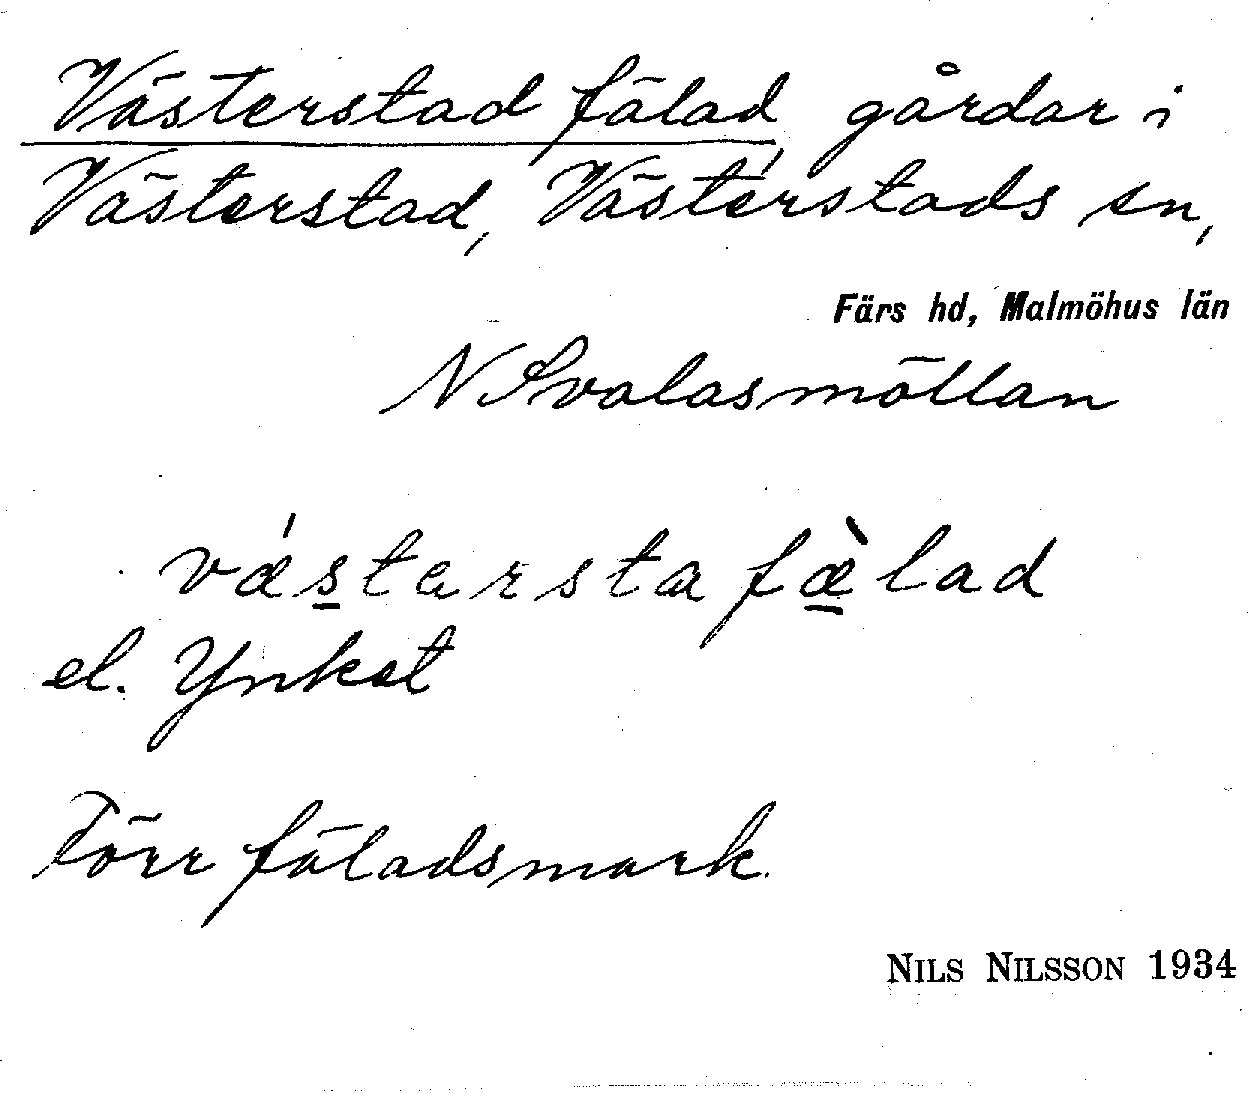 Västerstad fälad, gårdar i
Västerstad, Västerstads sn,
Färs hd, Malmöhus län
N Svalasmöllan
vǽstarstafæ̀lad
el. Ynket
Förr fäladsmark.
NILS NILSSON 1934